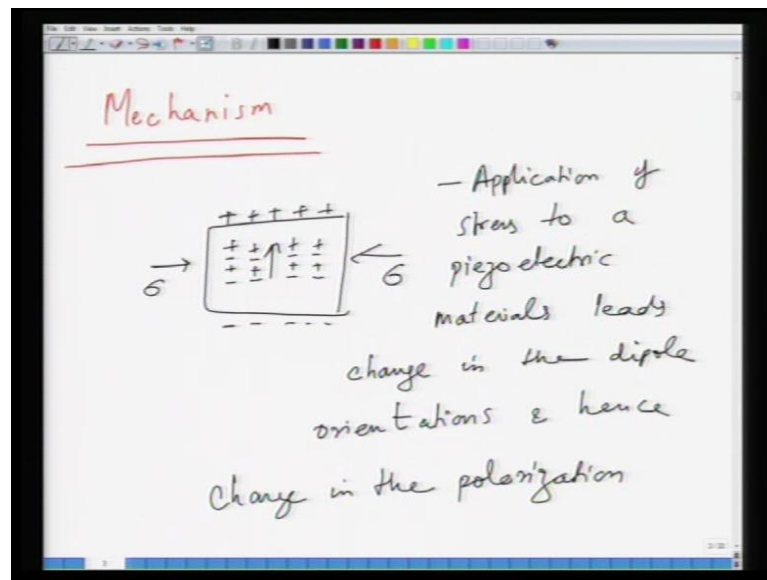 File Edit View Insert Actions Tools Help
Mechanism
+ + + + +
+ + + +
- - - -
+ + + +
- - - -
σ
σ
- - - - -
- Application of
stress to a
piezoelectric
materials leads
change in the dipole
orientations & hence
change in the polarization